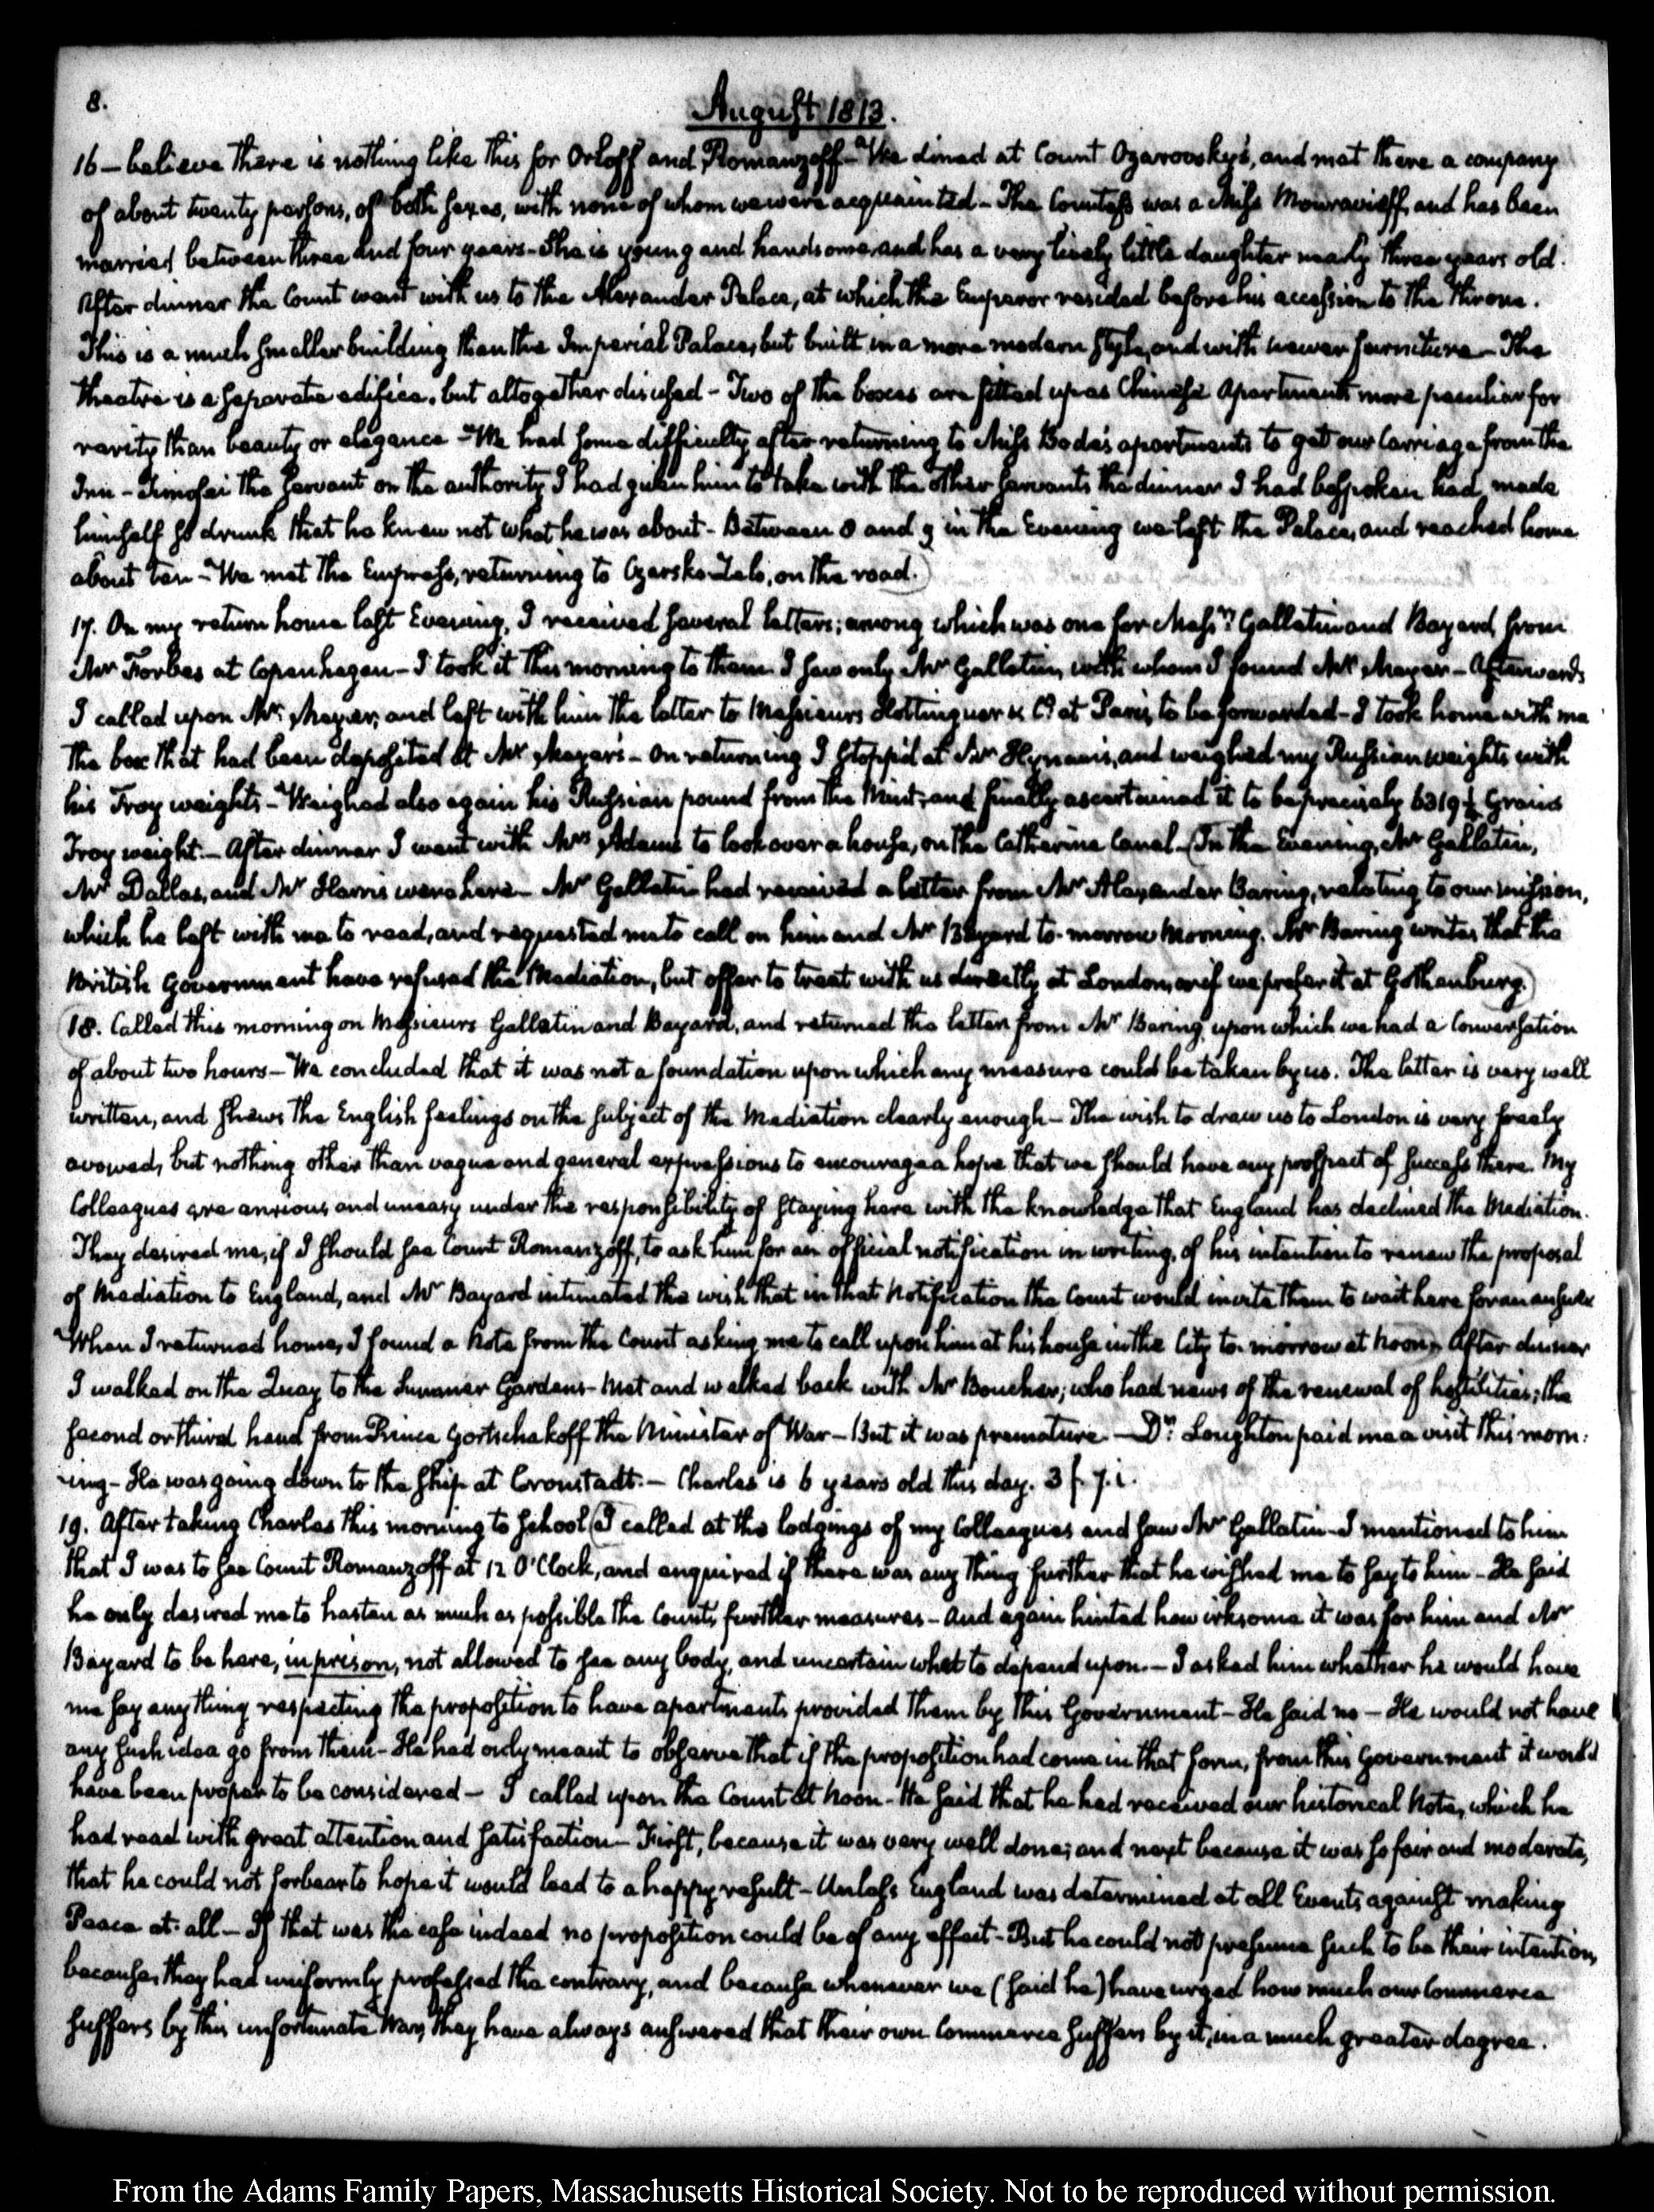 8.
August 1813.
16 – believe there is nothing like this for Orloff and Romanzoff – We dined at Count Ozarovsky's, and met there a company
of about twenty persons, of both sexes, with none of whom we were acquainted – The Countess was a Miss Mouravieff, and has been
married between three and four years – She is young and handsome and has a very lively little daughter nearly three years old.
After dinner the Count went with us to the Alexander Palace, at which the Emperor resided before his accession to the throne.
This is a much smaller building than the Imperial Palace, but built in a more modern style, and with newer furniture – The
theatre is a separate edifice, but altogether disused – Two of the boxes are fitted up as Chinese Apartments more peculiar for
rarity than beauty or elegance – We had some difficulty after returning to Miss Bode's apartments to get our Carriage from the
Inn – Timofei the servant on the authority I had given him to take with the other servants the dinner I had bespoken had made
himself so drunk that he knew not what he was about – Between 8 and 9 in the Evening we left the Palace, and reached home
about ten – We met the Empress, returning to Czarsko-Zelo, on the road.)
17. On my return home last Evening, I received several letters; among which was one for Messrs. Gallatin and Bayard, from
Mr Forbes at Copenhagen – I took it this morning to them. I saw only Mr Gallatin, with whom I found Mr Meyer – Afterwards
I called upon Mr. Meyer, and left with him the letter to Messieurs Hottinguer & Co. at Paris, to be forwarded – I took home with me
the box that had been deposited at Mr Meyer's – On returning I stopp'd at Mr Hynam's, and weighed my Russian weights with
his Troy weights – Weighed also again his Russian pound from the Mint, and finally ascertained it to be precisely 6319½ Grains
Troy weight. – After dinner I went with Mrs Adams to look over a house, on the Catherine Canal – (In the Evening, Mr Gallatin,
Mr Dallas, and Mr Harris were here – Mr Gallatin had received a letter from Mr Alexander Baring, relating to our mission,
which he left with me to read, and requested me to call on him and Mr Bayard to-morrow Morning. Mr Baring writes that the
British Government have refused the Mediation, but offer to treat with us directly at London, or if we prefer it at Gothenburg.)
(18. Called this morning on Messieurs Gallatin and Bayard, and returned the letter from Mr Baring, upon which we had a Conversation
of about two hours – We concluded that it was not a foundation upon which any measure could be taken by us. The letter is very well
written, and shews the English feelings on the subject of the Mediation clearly enough – The wish to draw us to London is very freely
avowed, but nothing other than vague and general expressions to encourage a hope that we should have any prospect of success there. My
Colleagues are anxious and uneasy under the responsibility of staying here with the knowledge that England has declined the Mediation.
They desired me, if I should see Count Romanzoff, to ask him for an official notification in writing, of his intention to renew the proposal
of Mediation to England, and Mr Bayard intimated the wish that in that Notification the Count would invite them to wait here for an answer
When I returned home, I found a Note from the Count asking me to call upon him at his house in the City to-morrow at Noon) After dinner
I walked on the Quay to the Summer Gardens – Met and walked back with Mr Boucher; who had news of the renewal of hostilities; the
second or third hand from Prince Gortschakoff the Minister of War – But it was premature. – Dr. Loughton paid me a visit this morn:
-ing – He was going down to the ship at Cronstadt. – Charles is 6 years old this day. 3 f. 7. i.
19. After taking Charles this morning to School (I called at the lodgings of my Colleagues and saw Mr Gallatin – I mentioned to him
that I was to see Count Romanzoff at 12 O'Clock, and enquired if there was any thing further that he wished me to say to him – He said
he only desired me to hasten as much as possible the Count's further measures – And again hinted how irksome it was for him and Mr
Bayard to be here, in prison, not allowed to see any body, and uncertain what to depend upon. – I asked him whether he would have
me say any thing respecting the proposition to have apartments provided them by this Government – He said no – He would not have
any such idea go from them – He had only meant to observe that if the proposition had come in that form, from this Government it would
have been proper to be considered – I called upon the Count at Noon – He said that he had received our historical Note, which he
had read with great attention and satisfaction – First, because it was very well done; and next because it was so fair and moderate,
that he could not forbear to hope it would lead to a happy result – Unless England was determined at all Events against making
Peace at all – If that was the case indeed no proposition could be of any effect – But he could not presume such to be their intention,
because they had uniformly professed the contrary, and because whenever we (said he) have urged how much our Commerce
suffers by this unfortunate War, they have always answered that their own Commerce suffers by it, in a much greater degree.
From the Adams Family Papers, Massachusetts Historical Society. Not to be reproduced without permission.